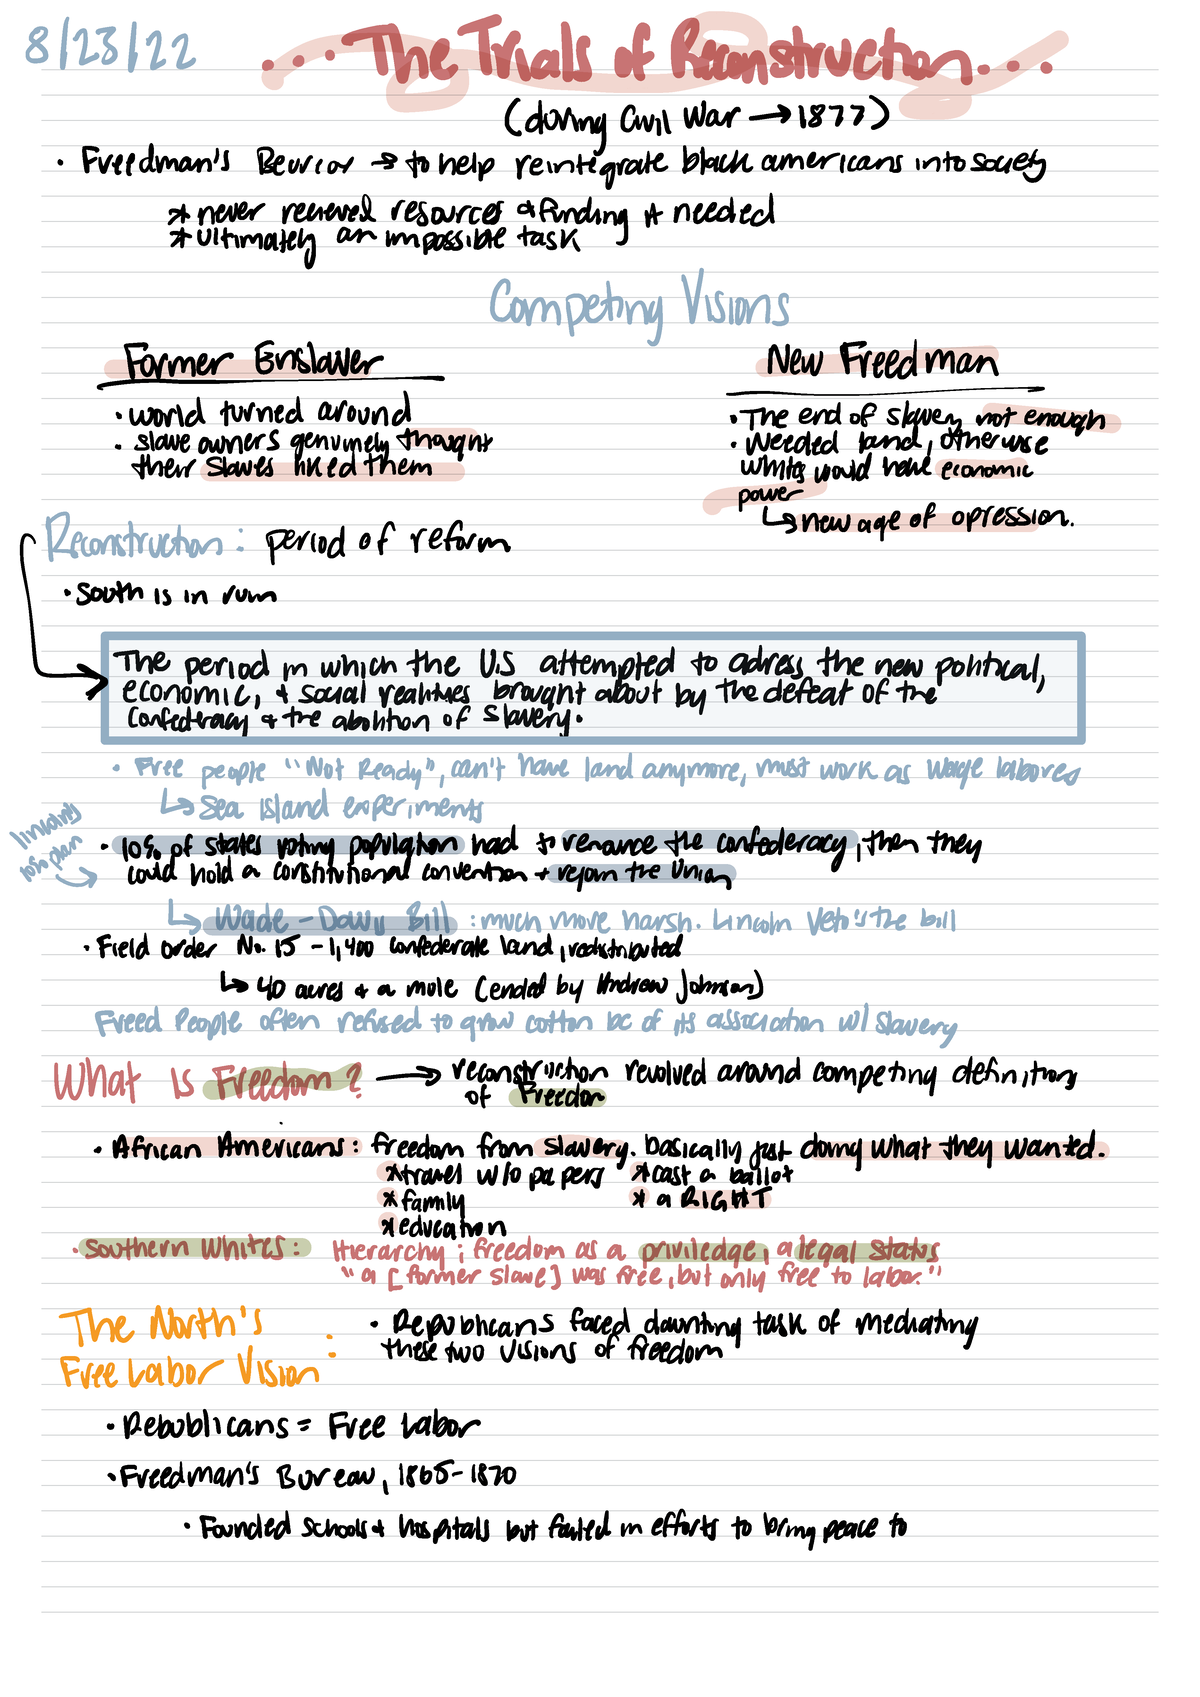 8/23/22
...The Trials of Reconstruction...
(during Civil War → 1877)
• Freedman's Beurior → to help reintegrate black americans into society
* never recieved resources & funding it needed
* ultimately an impossible task
Competing Visions
Former Enslaver
• world turned around
• slave owners genuinely thought
their slaves liked them
New Freedman
• The end of slavery not enough
• Needed land, otherwise
whites would have economic
power
↳ new age of opression.
Reconstruction: period of reform
• South is in ruin
The period in which the U.S attempted to adress the new political,
economic, & social realities brought about by the defeat of the
Confederacy & the abolition of slavery.
• Free people "Not Ready", can't have land anymore, must work as wage labores
↳ Sea Island experiments
lincolns
10% plan
• 10% of states voting population had to renounce the confederacy, then they
could hold a constitutional convention + rejoin the Union
↳ Wade-Davis Bill : much more harsh. Lincoln Veto's the bill
• Field order No. 15 - 1,400 confederate land, redistributed
↳ 40 acres & a mole (ended by Andrew Johnson)
Freed People often refused to grow cotton bc of its association w/ slavery
What is Freedom? → reconstruction revolved around competing definitions
of Freedom
• African Americans: freedom from slavery. basically just doing what they wanted.
* travel w/o papers * cast a ballot
* family * a RIGHT
* education
• Southern Whites: Hierarchy; freedom as a priviledge, a legal status
"a [former slave] was free, but only free to labor."
The North's
Free Labor Vision:
• Republicans faced daunting task of mediating
these two visions of freedom
• Republicans = Free Labor
• Freedman's Bureau, 1865-1870
• Founded schools & hospitals but failed in efforts to bring peace to